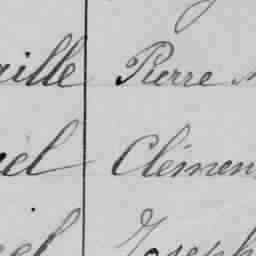 aille Pierre
el Clémen
el Joseph